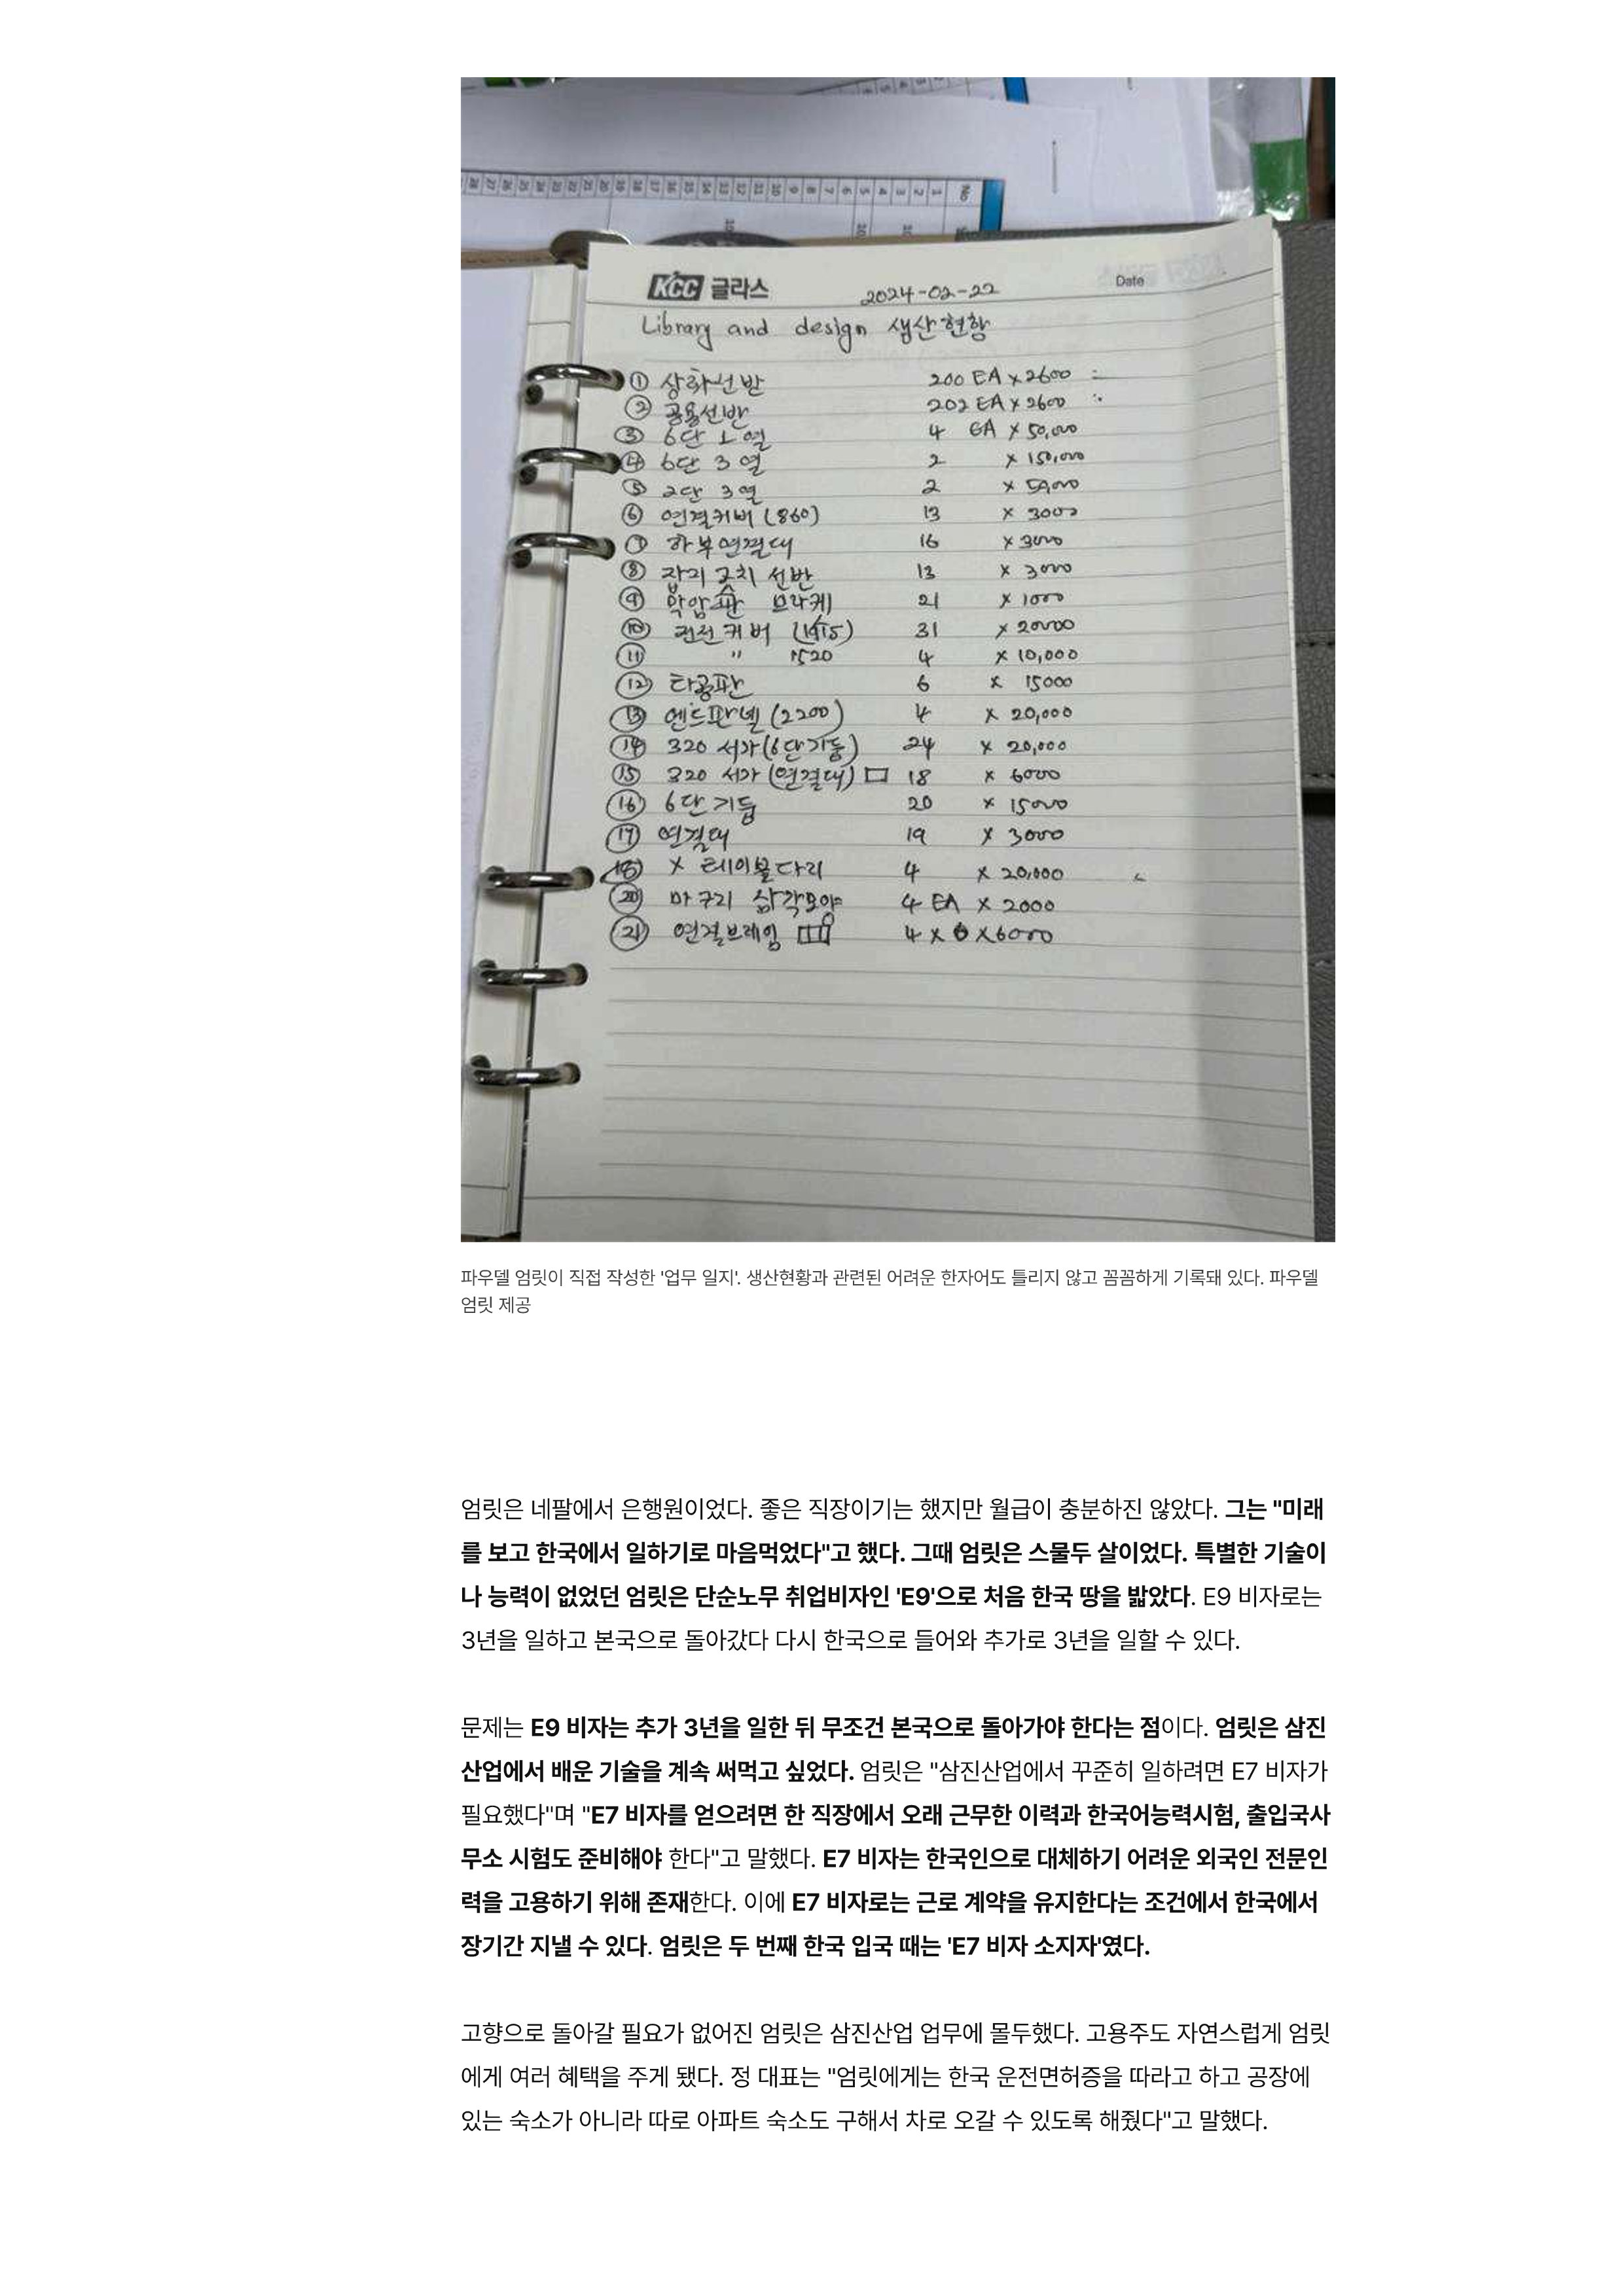 KCC 글라스
2024-02-22
Date
Library and design 생산현황
① 상하선반 200 EA x 2600
② 공용선반 202 EA x 2600
③ 6단 1열 4 EA x 50,000
④ 6단 3열 2 x 150,000
⑤ 2단 3열 2 x 50,000
⑥ 연결커버 (860) 13 x 3000
⑦ 하부연결대 16 x 3000
⑧ 선반 13 x 3000
⑨ 브라케 21 x 1000
⑩ 커버 31 x 20000
⑪ " 1520 4 x 10,000
⑫ 타공판 6 x 15000
⑬ 엔드판넬 (2200) 4 x 20,000
⑭ 320 서가 (6단기둥) 24 x 20,000
⑮ 320 서가 (연결대) 18 x 6000
⑯ 6단기둥 20 x 15000
⑰ 연결대 19 x 3000
x 테이블다리 4 x 20,000
⑳ 마구리 삼각모양 4 EA x 2000
㉑ 연결브레임 4 x 6 x 6000
파우델 엄릿이 직접 작성한 '업무 일지'. 생산현황과 관련된 어려운 한자어도 틀리지 않고 꼼꼼하게 기록돼 있다. 파우델
엄릿 제공
엄릿은 네팔에서 은행원이었다. 좋은 직장이기는 했지만 월급이 충분하진 않았다. 그는 "미래
를 보고 한국에서 일하기로 마음먹었다"고 했다. 그때 엄릿은 스물두 살이었다. 특별한 기술이
나 능력이 없었던 엄릿은 단순노무 취업비자인 'E9'으로 처음 한국 땅을 밟았다. E9 비자로는
3년을 일하고 본국으로 돌아갔다 다시 한국으로 들어와 추가로 3년을 일할 수 있다.
문제는 E9 비자는 추가 3년을 일한 뒤 무조건 본국으로 돌아가야 한다는 점이다. 엄릿은 삼진
산업에서 배운 기술을 계속 써먹고 싶었다. 엄릿은 "삼진산업에서 꾸준히 일하려면 E7 비자가
필요했다"며 "E7 비자를 얻으려면 한 직장에서 오래 근무한 이력과 한국어능력시험, 출입국사
무소 시험도 준비해야 한다"고 말했다. E7 비자는 한국인으로 대체하기 어려운 외국인 전문인
력을 고용하기 위해 존재한다. 이에 E7 비자로는 근로 계약을 유지한다는 조건에서 한국에서
장기간 지낼 수 있다. 엄릿은 두 번째 한국 입국 때는 'E7 비자 소지자'였다.
고향으로 돌아갈 필요가 없어진 엄릿은 삼진산업 업무에 몰두했다. 고용주도 자연스럽게 엄릿
에게 여러 혜택을 주게 됐다. 정 대표는 "엄릿에게는 한국 운전면허증을 따라고 하고 공장에
있는 숙소가 아니라 따로 아파트 숙소도 구해서 차로 오갈 수 있도록 해줬다"고 말했다.